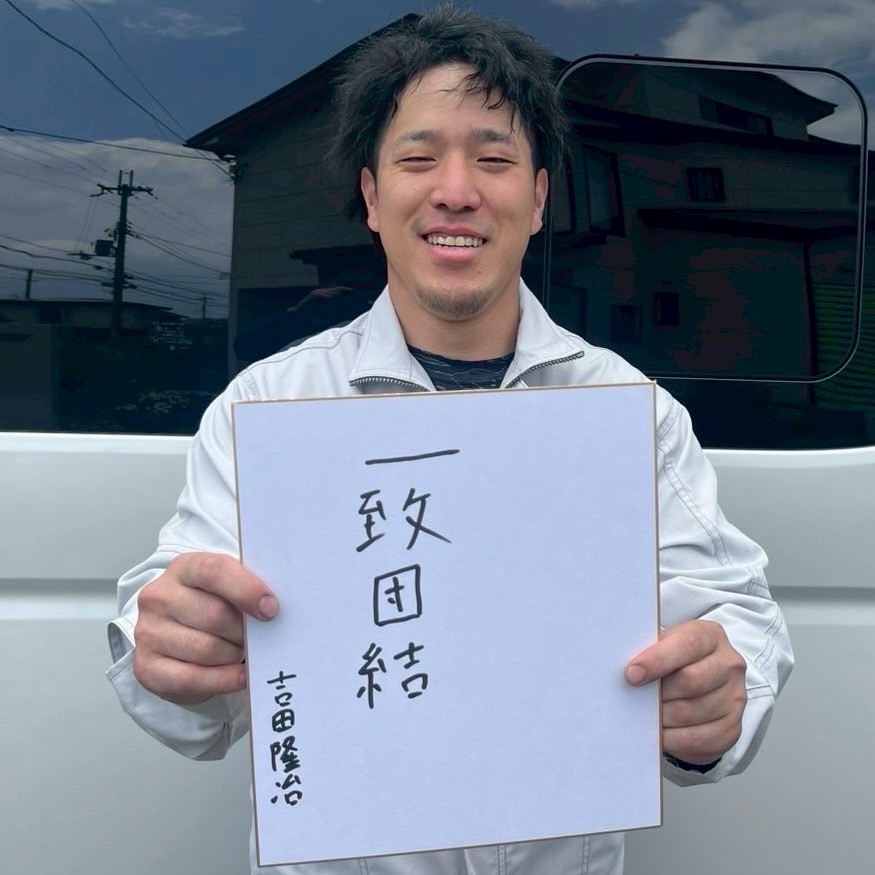 一致団結
吉田隆治